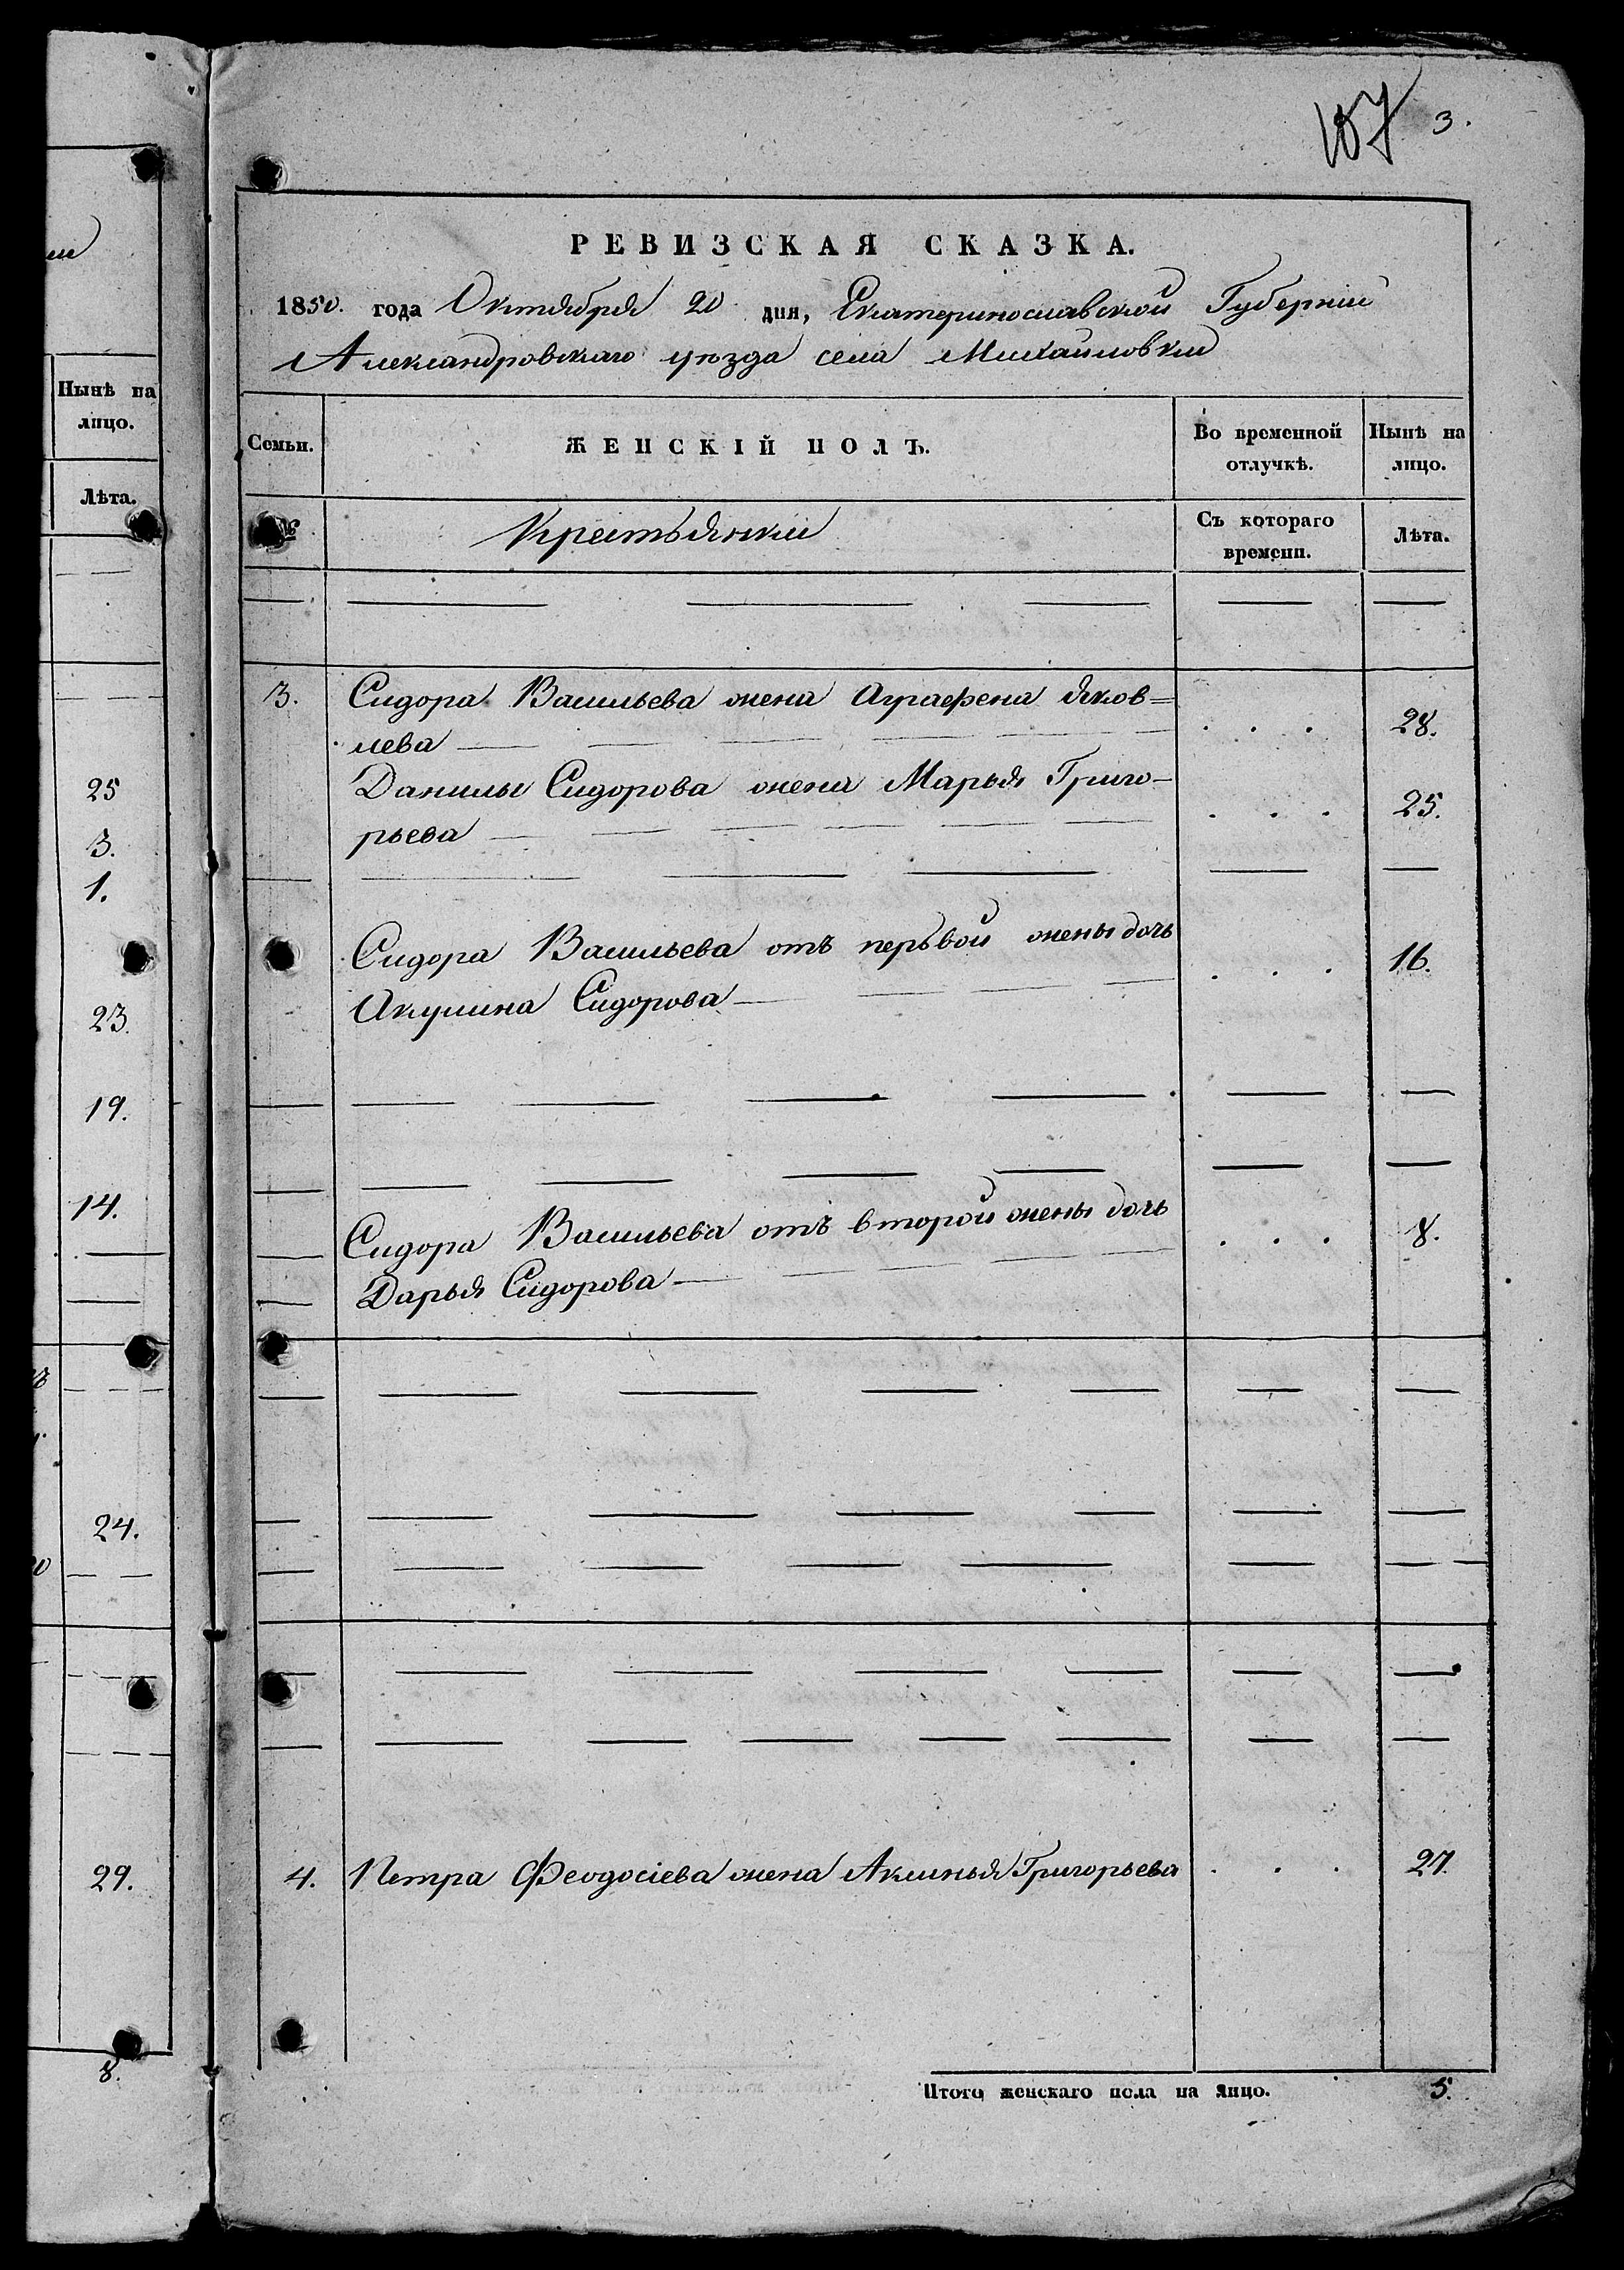 187 3.
РЕВИЗСКАЯ СКАЗКА.
1850. года Октября 20 дня, Екатеринославской Губерніи
Александровскаго уѣзда села Михайловки
Нынѣ на
лицо.
Лѣта.
25
3.
1.
23.
19.
14.
24.
29.
8.
Семьи. ЖЕНСКІЙ ПОЛЪ. Во временной Нынѣ на
отлучкѣ. лицо.
№ Крестьянки Съ котораго Лѣта.
времени.
3. Сидора Васильева жена Аграфена Яков= . . . 28.
лева
Данилы Сидорова жена Марья Григо- . . . 25.
рьева
Сидора Васильева отъ первой жены дочь . . . 16.
Акулина Сидорова
Сидора Васильева отъ второй жены дочь . . . 8.
Дарья Сидорова
4. Петра Феодосіева жена Акминья Григорьева . . . 27.
Итого женскаго пола на лицо. 5.